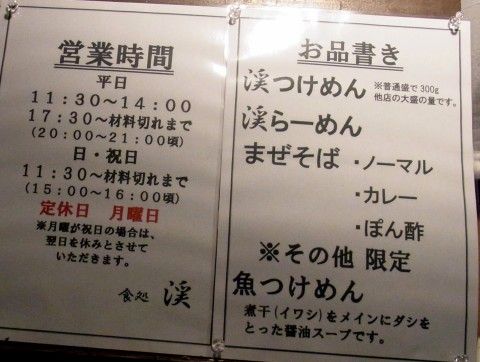 営業時間
平日
11：30～14：00
17：30～材料切れまで
(20：00～21：00頃)
日・祝日
11：30～材料切れまで
(15：00～16：00頃)
定休日 月曜日
※月曜が祝日の場合は、
翌日を休みとさせて
いただきます。
食処 渓
お品書き
渓つけめん ※普通盛で300g
他店の大盛の量です。
渓らーめん
まぜそば ・ノーマル
・カレー
・ぽん酢
※その他 限定
魚つけめん
煮干(イワシ)をメインにダシを
とった醤油スープです。